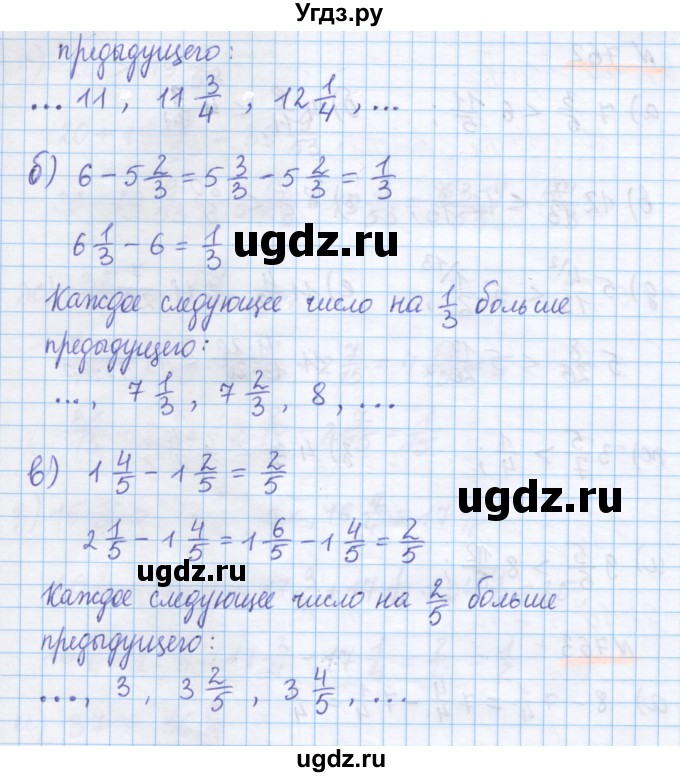 Угдз.ру
предыдущего:
... 11, 11 3/4, 12 1/4, ...
б) 6 - 5 2/3 = 5 3/3 - 5 2/3 = 1/3
6 1/3 - 6 = 1/3
ugdz.ru
Каждое следующее число на 1/3 больше
предыдущего:
..., 7 1/3, 7 2/3, 8, ...
в) 1 4/5 - 1 2/5 = 2/5
ugdz.ru
2 1/5 - 1 4/5 = 1 6/5 - 1 4/5 = 2/5
ugdz.ru
Каждое следующее число на 2/5 больше
предыдущего:
..., 3, 3 2/5, 3 4/5, ...
ugdz.ru